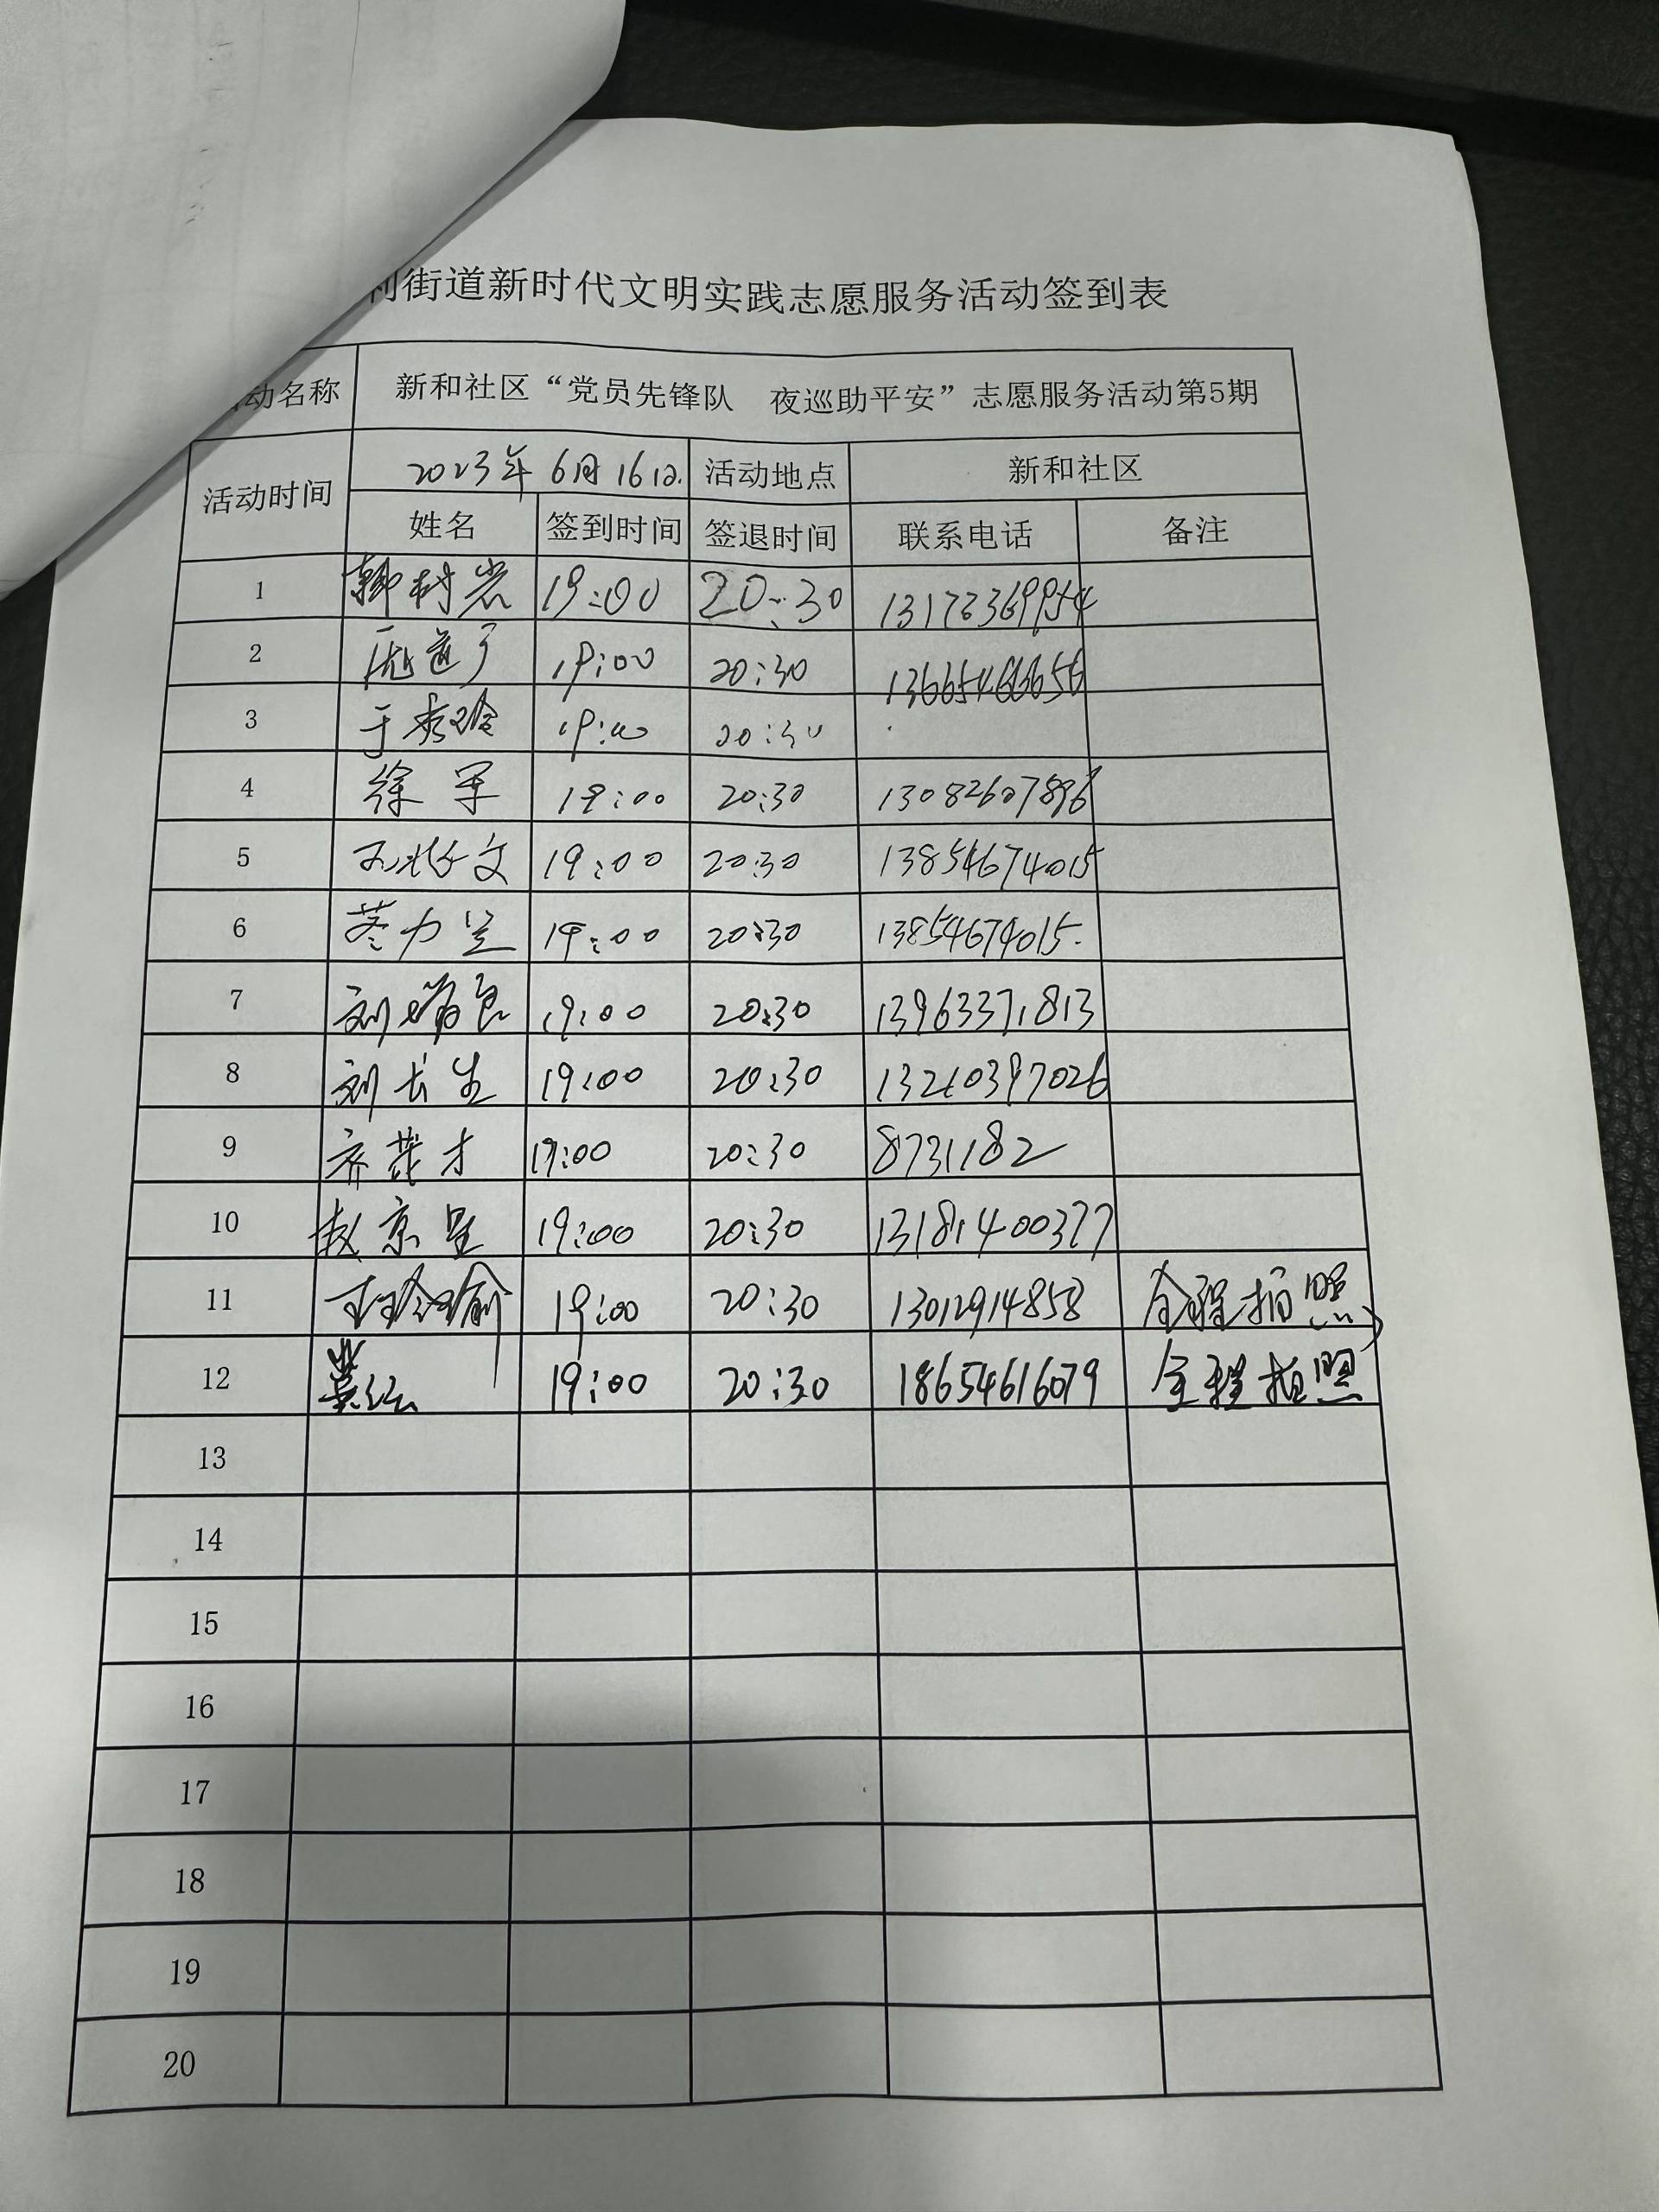 利街道新时代文明实践志愿服务活动签到表
活动名称 新和社区“党员先锋队 夜巡助平安”志愿服务活动第5期
活动时间 2023年6月16日. 活动地点 新和社区
姓名 签到时间 签退时间 联系电话 备注
1 19:00 20:30
2 19:00 20:30 13665466656
3 于秀玲 20:30
4 徐军 19:00 20:30 13082607896
5 19:00 20:30 13854674015
6 19:00 20:30 13854674015.
7 刘瑞良 19:00 20:30 13963371813
8 刘长生 19:00 20:30 13210397026
9 齐茂才 19:00 20:30 8731182
10 赵京星 19:00 20:30 13181400377
11 19:00 20:30 13012914858 全程拍照
12 19:00 20:30 18654616079 全程拍照
13
14
15
16
17
18
19
20